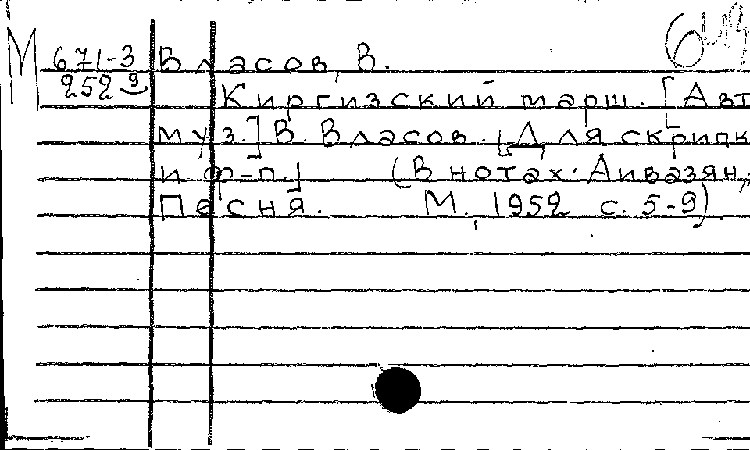 М 671-3 Власов, В.
252 9
Киргизский марш. [Авт
муз.] В. Власов. [Для скрипк
и ф-п.] (В нотах: Аивазян,
Песня. М., 1952 с. 5-9)